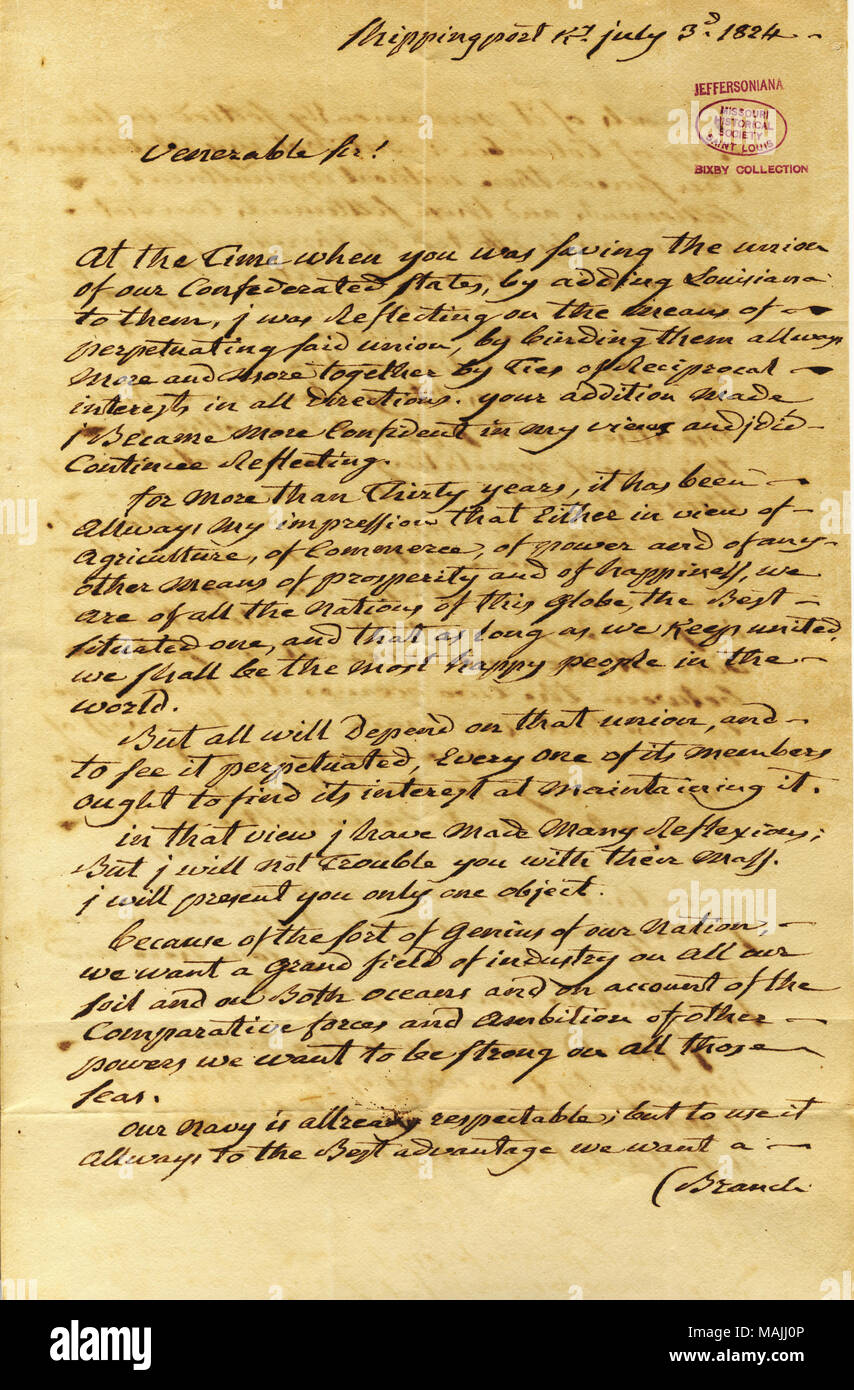 Shippingport Ky. july 3d. 1824
JEFFERSONIANA
MISSOURI
HISTORICAL
SOCIETY
SAINT LOUIS
BIXBY COLLECTION
Venerable sir!
At the Time when you was saving the union
of our Confederated states, by adding Louisiana
to them, j was Reflecting on the means of
perpetuating said union, by binding them allways
more and more together by Ties of Reciprocal
interests in all directions. your addition made
j Became more Confident in my views and j did
Continue Reflecting.
for more than Thirty years, it has been
Allways my impression that Either in view of
Agriculture, of Commerce, of power and of any
other means of prosperity and of happiness, we
are of all the Nations of this Globe, the Best
situated one, and that as long as we Keep united,
we shall be the most happy people in the
world.
But all will Depend on that union, and
to see it perpetuated, Every one of its members
ought to find its interest at maintaining it.
in that view j have made Many Reflexions;
But j will not Trouble you with their Mass.
j will present you only one object.
because of the sort of Genius of our Nation,
we want a Grand field of industry on all our
soil and on Both oceans and on account of the
Comparative forces and Ambition of other
powers we want to be strong on all those
seas.
our Navy is allready respectable; but to use it
Allways to the Best advantage we want a
(Branch
alamy
alamy
Image ID: MAJJ0P
www.alamy.com